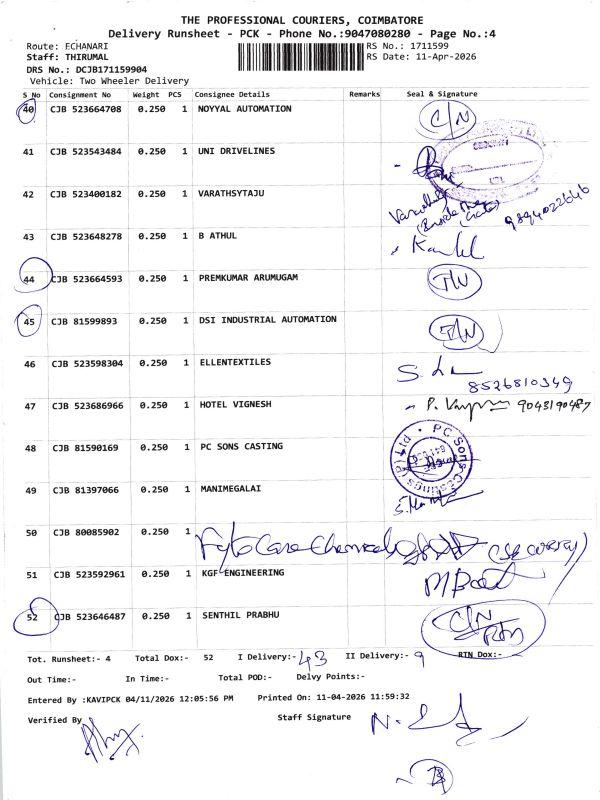 THE PROFESSIONAL COURIERS, COIMBATORE
Delivery Runsheet - PCK - Phone No.:9047080280 - Page No.:4
Route: ECHANARI RS No.: 1711599
Staff: THIRUMAL RS Date: 11-Apr-2026
DRS No.: DCJB171159904
Vehicle: Two Wheeler Delivery
S No Consignment No Weight PCS Consignee Details Remarks Seal & Signature
40 CJB 523664708 0.250 1 NOYYAL AUTOMATION C/N
41 CJB 523543484 0.250 1 UNI DRIVELINES
42 CJB 523400182 0.250 1 VARATHSYTAJU 9894022646
43 CJB 523648278 0.250 1 B ATHUL
44 CJB 523664593 0.250 1 PREMKUMAR ARUMUGAM T/N
45 CJB 81599893 0.250 1 DSI INDUSTRIAL AUTOMATION T/N
46 CJB 523598304 0.250 1 ELLENTEXTILES
8526810349
47 CJB 523686966 0.250 1 HOTEL VIGNESH 9043190487
48 CJB 81590169 0.250 1 PC SONS CASTING PC Sons Castings (P) Ltd
49 CJB 81397066 0.250 1 MANIMEGALAI
50 CJB 80085902 0.250 1 Fyto Care Chemicals
51 CJB 523592961 0.250 1 KGF ENGINEERING
52 CJB 523646487 0.250 1 SENTHIL PRABHU C/N
RTN
Tot. Runsheet:- 4 Total Dox:- 52 I Delivery:- 43 II Delivery:- 9 RTN Dox:-
Out Time:- In Time:- Total POD:- Delvy Points:-
Entered By :KAVIPCK 04/11/2026 12:05:56 PM Printed On: 11-04-2026 11:59:32
Verified By Staff Signature